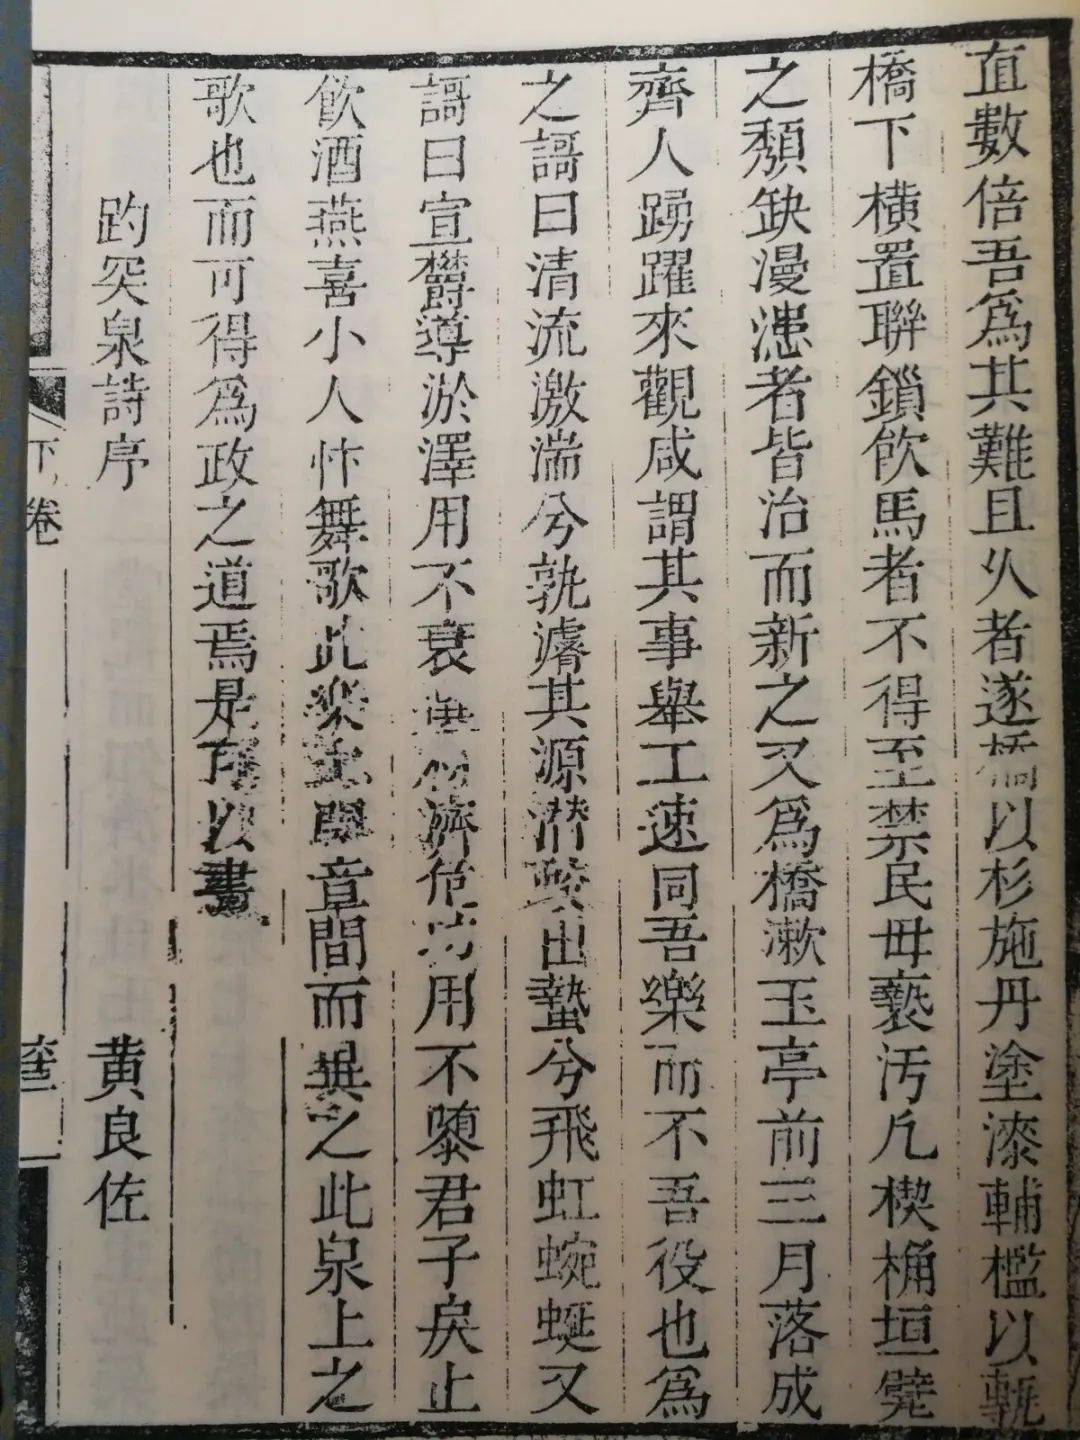 直數倍吾爲其難且久者遂橋以杉施丹塗漆輔檻以
橋下橫置聯鎖飲馬者不得至禁民毋褻汚凢楔桷垣甓
之頽缺漫漶者皆治而新之又爲橋漱玉亭前三月落成
齊人踴躍來觀咸謂其事舉工速同吾樂而不吾役也爲
之謌曰清流激湍兮孰濬其源潜蛟出蟄兮飛虹蜿蜒又
謌曰宣欝導淤澤用不衰濟危功用不隳君子戾止
飲酒燕喜小人忭舞歌此樂章間而巽之此泉上之
歌也而可得爲政之道焉是可以書
趵突泉詩序 黄良佐
下卷